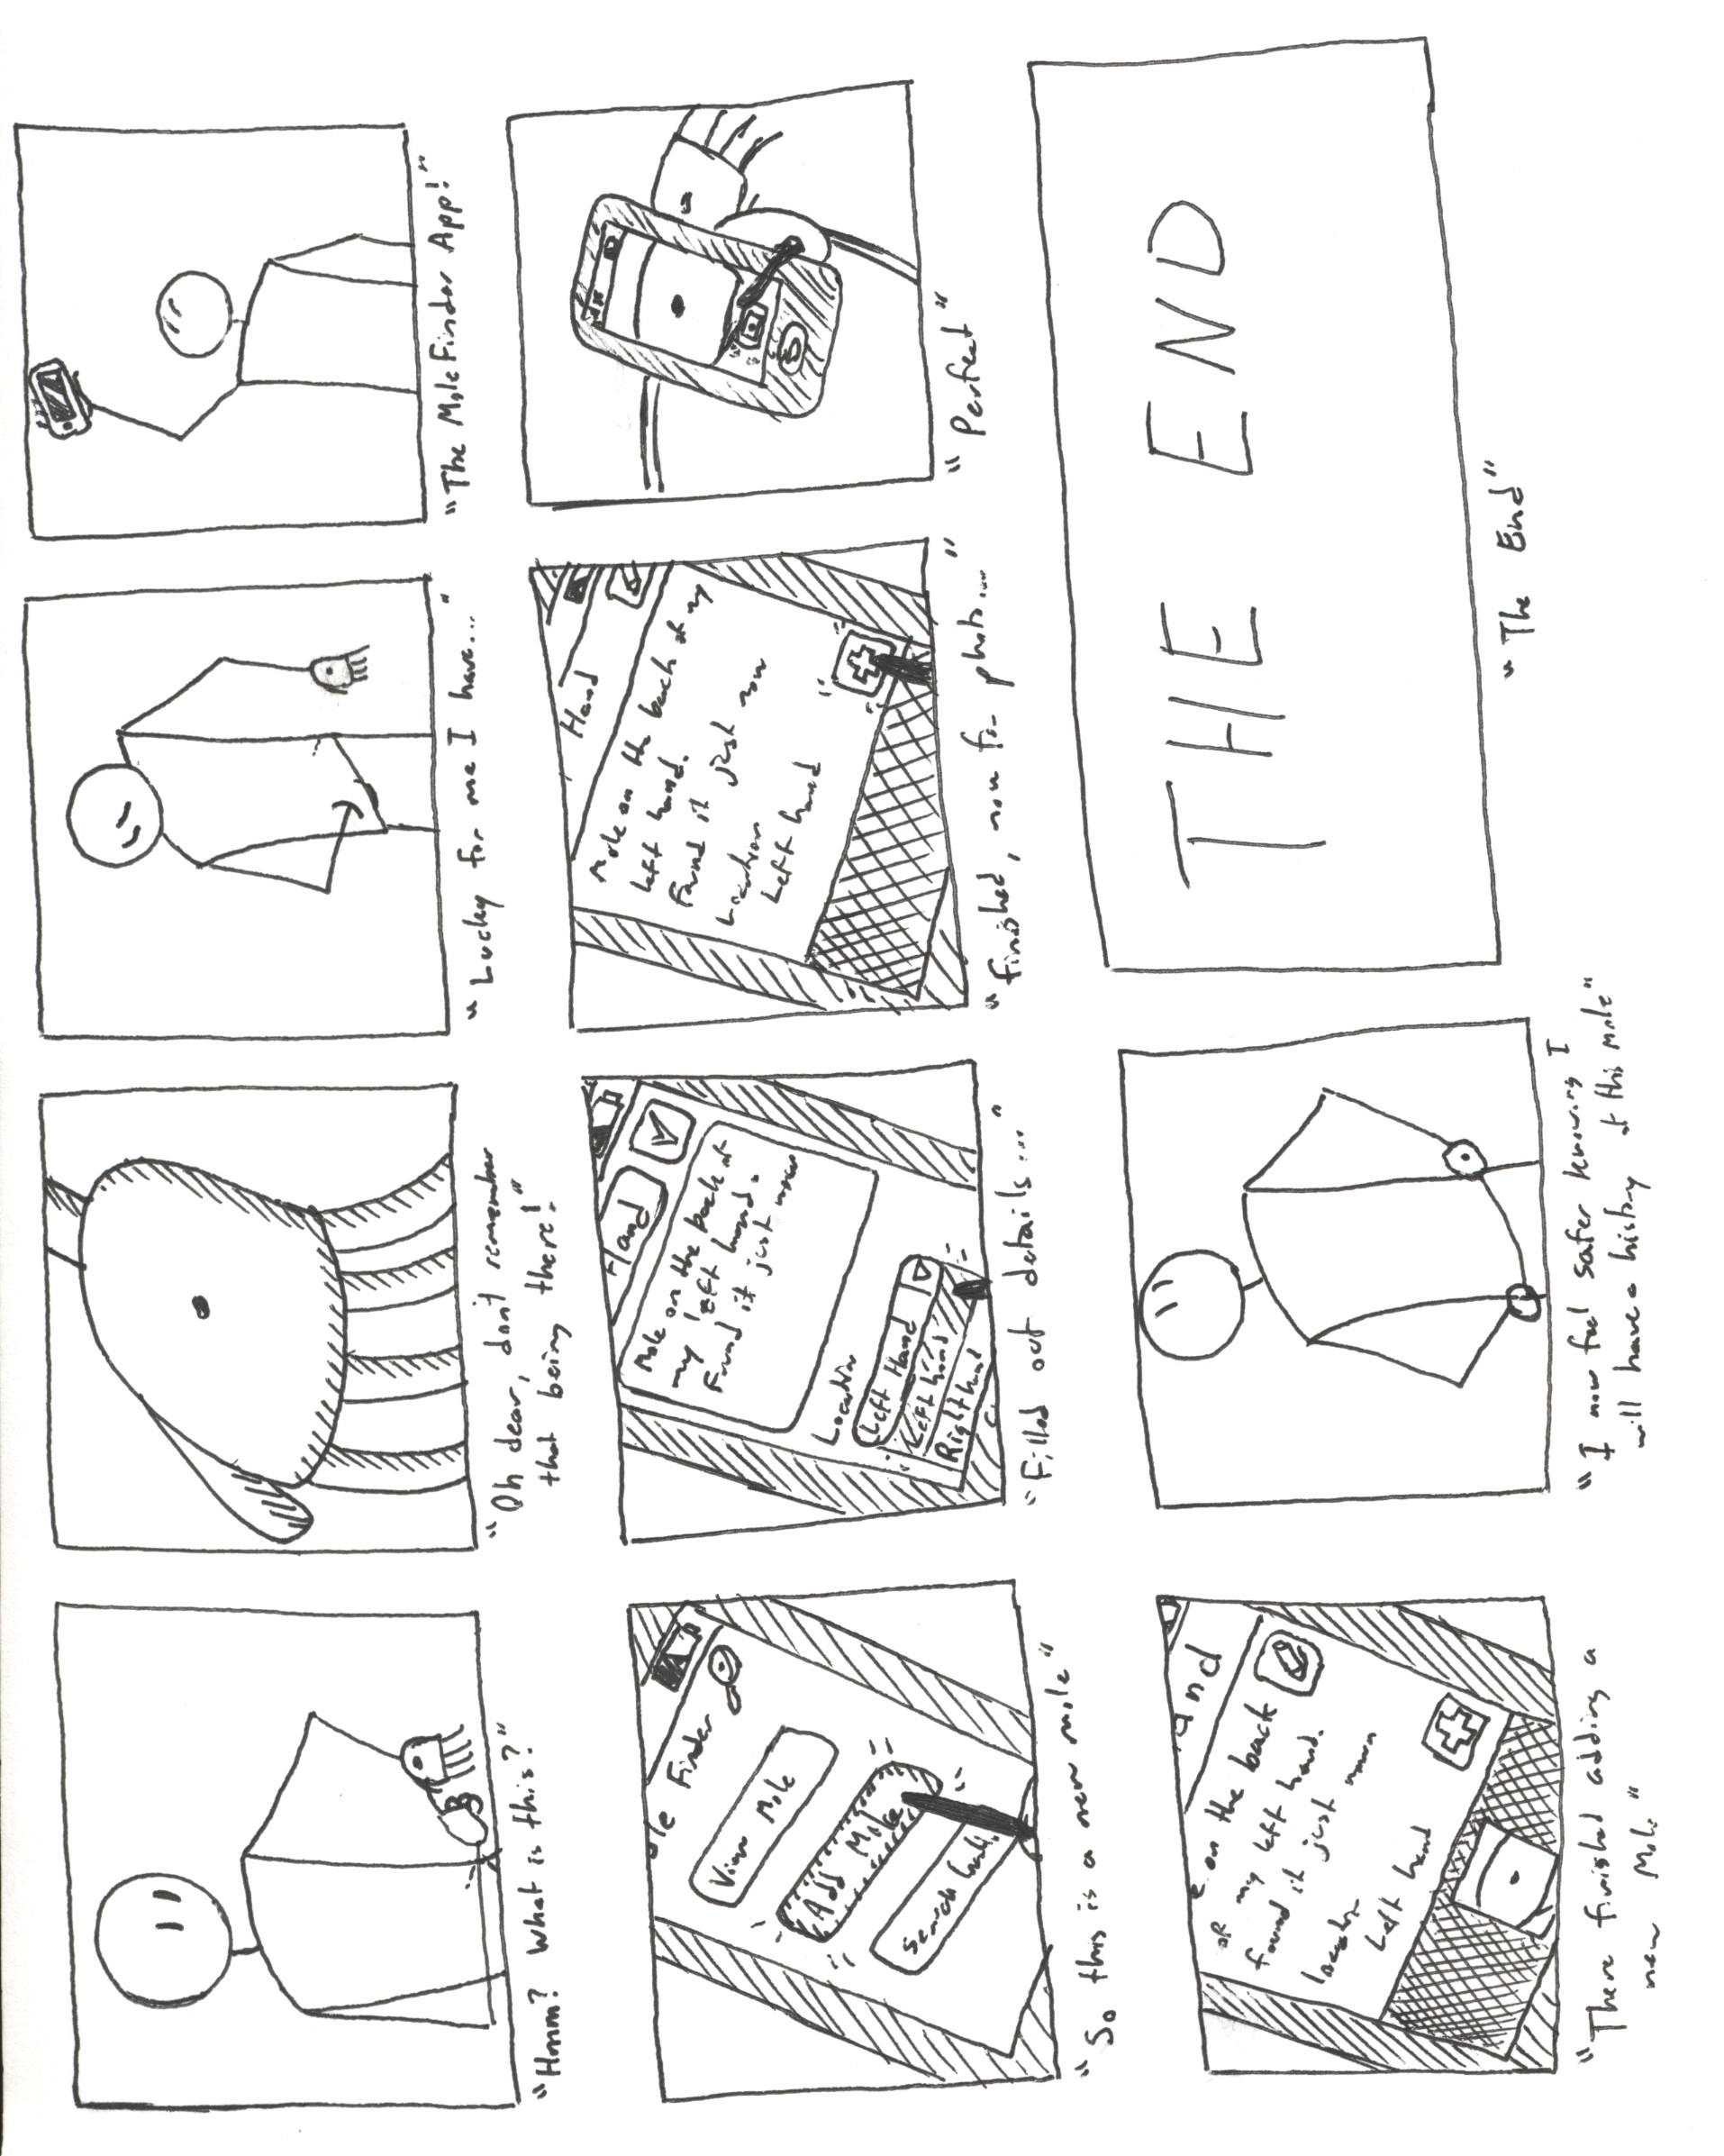 "Hmm? What is this?"
"Oh dear, don't remember
that being there!"
"Lucky for me I have..."
"The Mole Finder App!"
le Finder
View Mole
Add Mole
Search
"So this is a new mole"
Hand
Mole on the back of
my left hand.
Found it just now
Location
Left Hand
Left hand
Right hand
"Filled out details..."
Hand
Mole on the back of my
left hand.
Found it just now
Location
Left hand
"finished, now for photo..."
"Perfect"
and
e on the back
of my left hand.
found it just now
Location
Left hand
"There finished adding a
new Mole"
"I now feel safer knowing I
will have a history of this mole"
THE END
"The End"